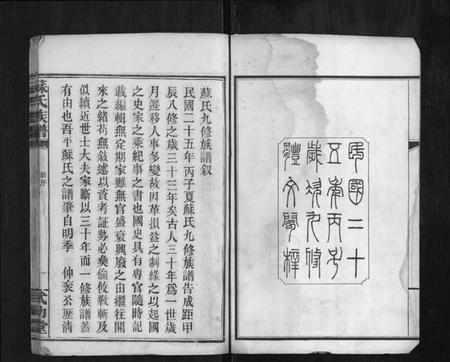 民國二十
五年丙子
歲次九修
體文閣梓
蘇氏九修族譜叙
民國二十五年丙子夏蘇氏九修族譜告成距甲
辰八修之歲三十三年矣古人三十年為一世歲
月遷移人事多變故因革損益之制緣之以起國
之史家之乘紀事之書也國史具有專官隨時記
載編輯無定期家雖無官盛衰興廢之由繼往開
來之緒苟無以資考証勢必矣倫攸斁斬及
似續近世士大夫家斷以三十年而一修族譜蓋
有由也吾平蘇氏之譜肇自明季 仲袞公歷清
蘇氏族譜